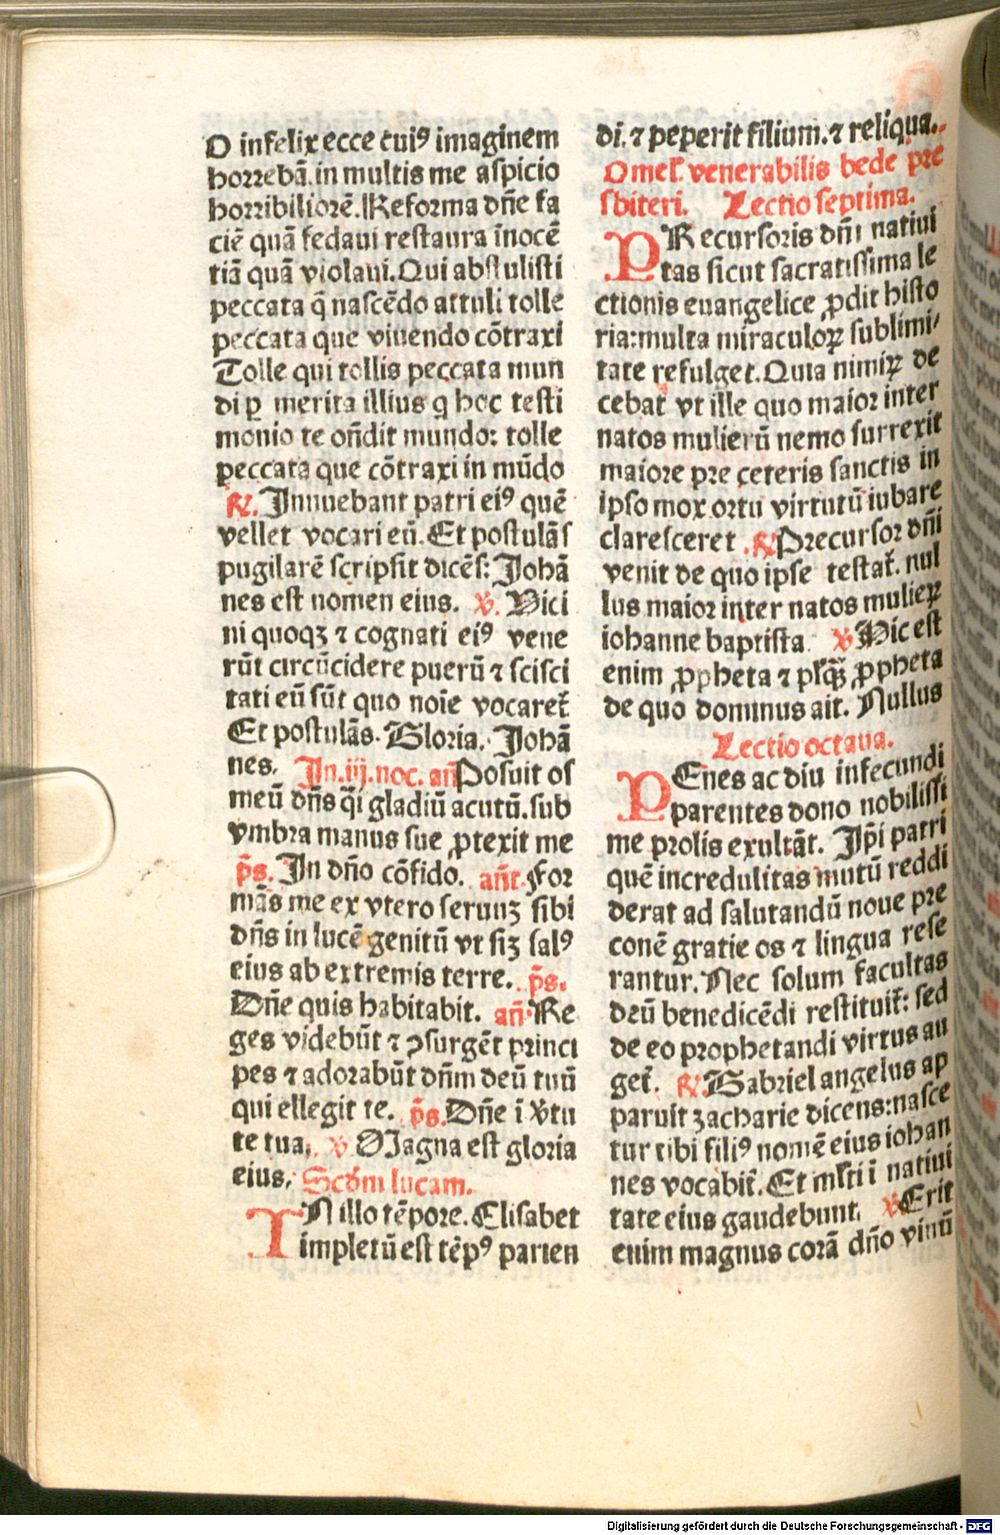 O infelix ecce cuiꝰ imaginem
horrebā. in multis me aspicio
horribiliorē. Reforma dn̄e fa
ciē quā fedaui restaura īnocē
tiā quā violaui. Qui abstulisti
peccata q̄ nascēdo attuli tolle
peccata que viuendo cōtraxi
Tolle qui tollis peccata mun
di ꝑ merita illius q hoc testi
monio te on̄dit mundo: tolle
peccata que cōtraxi in mūdo
℟. Innuebant patri eiꝰ quē
vellet vocari eū. Et postulās
pugilarē scripsit dicēs: Johā
nes est nomen eius. ℣. Vici
ni quoqꝫ ⁊ cognati eiꝰ vene
rūt circūcidere puerū ⁊ scisci
tati eū sūt quo noīe vocaret᷑
Et postulās. Gloria. Johā
nes. In .iij. noc. an̄ Posuit os
meū dn̄s q̄i gladiū acutū. sub
vmbra manus sue ꝓtexit me
p̄s. In dn̄o cōfido. an̄t. For
mās me ex vtero seruuꝫ sibi
dn̄s in lucē genitū vt siꝫ salꝰ
eius ab extremis terre. p̄s.
Dn̄e quis habitabit. an̄ Re
ges videbūt ⁊ ꝯsurgēt princi
pes ⁊ adorabūt dn̄m deū tuū
qui ellegit te. p̄s. Dn̄e ī v̄tu
te tua. ℣ Magna est gloria
eius. Scd̄m lucam.
IN illo tēpore. Elisabet
impletū est tēpꝰ parien
di. ⁊ peperit filium. ⁊ reliqua.
Omel᷑. venerabilis bede pre
sbiteri. Lectio septima.
PRecursoris dn̄i natiui
tas sicut sacratissima le
ctionis euangelice ꝓdit histo
ria: multa miraculoꝝ sublimi/
tate refulget. Quia nimiꝝ de
cebat vt ille quo maior inter
natos mulierū nemo surrexit
maiore pre ceteris sanctis in
ipso mox ortu virtutū iubare
claresceret. ℟ Precursor dn̄i
venit de quo ipse testat᷑. nul
lus maior inter natos mulieꝝ
iohanne baptista ℣ Hic est
enim ꝓpheta ⁊ pl᷑qꝫ ꝓpheta
de quo dominus ait. Nullus
Lectio octaua.
PEnes ac diu infecundi
parentes dono nobilissi
me prolis exultāt. Ip̄i patri
quē incredulitas mutū reddi
derat ad salutandū noue pre
conē gratie os ⁊ lingua rese
rantur. Nec solum facultas
deū benedicēdi restituit᷑: sed
de eo prophetandi virtus au
get᷑. ℟. Gabriel angelus ap
paruit zacharie dicens: nasce
tur tibi filiꝰ nomē eius iohan
nes vocabit᷑. Et ml᷑ti ī natiui
tate eius gaudebunt. ℣ Erit
enim magnus corā dn̄o vinū
Digitalisierung gefördert durch die Deutsche Forschungsgemeinschaft - DFG